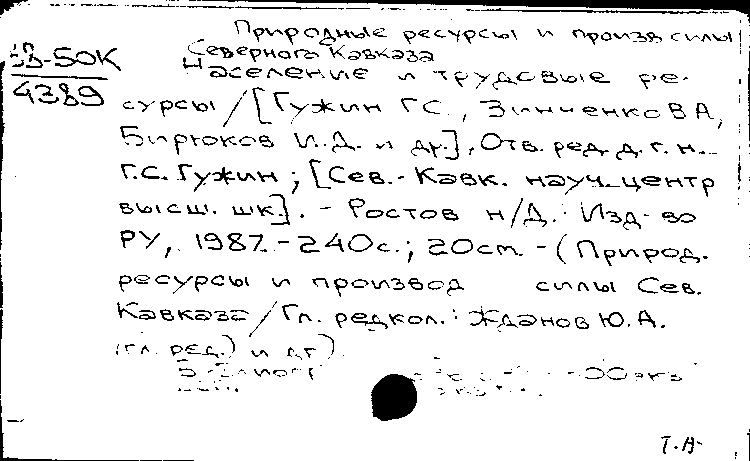 Природные ресурсы и произв силы
Северного Кавказа
-50К
4289
Население и трудовые ре-
сурсы / [Гужин Г.С., Зинченко В А,
Бирюков И.Д. и др.], Отв. ред. д. г. н.
Г.С. Гужин ; [Сев.-Кавк. науч. центр
высш. шк.]. - Ростов н/Д. : Изд-во
РУ, 1987. - 240с. ; 20см. - ( Природ.
ресурсы и производ силы Сев.
Кавказа / Гл. редкол. : Жданов Ю.А.
(гл. ред.) и др)
Т.А